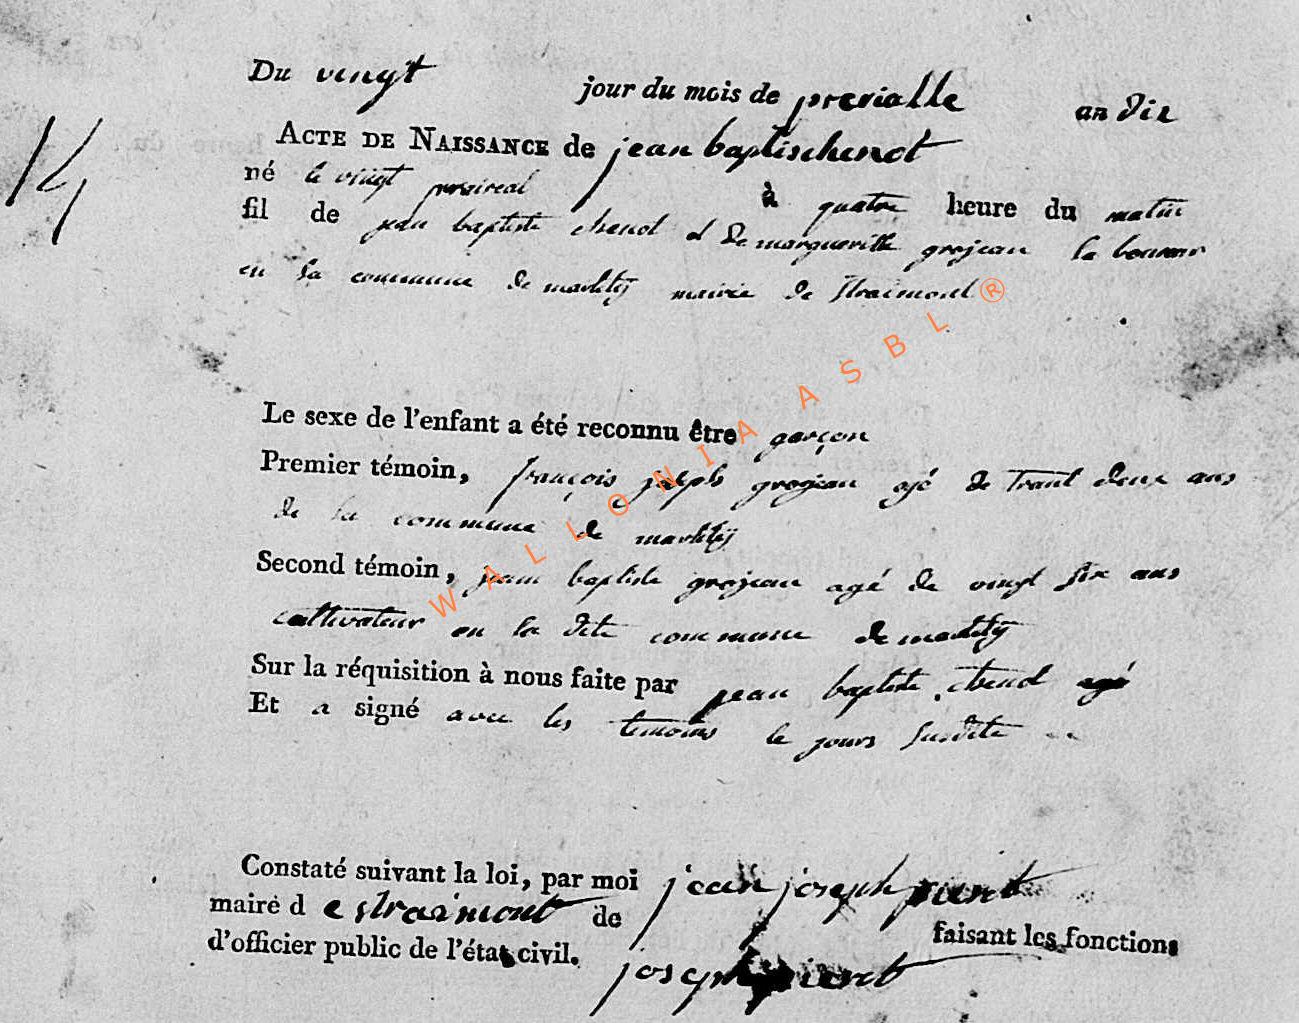 14
Du vingt jour du mois de prerialle an dix
ACTE DE NAISSANCE de jean baptischenot
né le vingt prerireal à quatre heure du matin
fil de jean baptiste chenot et de margueritte grojean laboureur
en la commune de martilly mairie de straimont
Le sexe de l'enfant a été reconnu être garçon
Premier témoin, françois joseph grojean agé de trant deux ans
de la commune de martilly
Second témoin, jean baptiste grojean agé de vingt six ans
cultivateur en la dite commune de martilly
Sur la réquisition à nous faite par jean baptiste chenot agé
Et a signé avec les temoins le jours susdite
Constaté suivant la loi, par moi jean joseph pierret
maire d e straimont de faisant les fonctions
d'officier public de l'état civil.
joseph pierret
WALLONIA ASBL ®